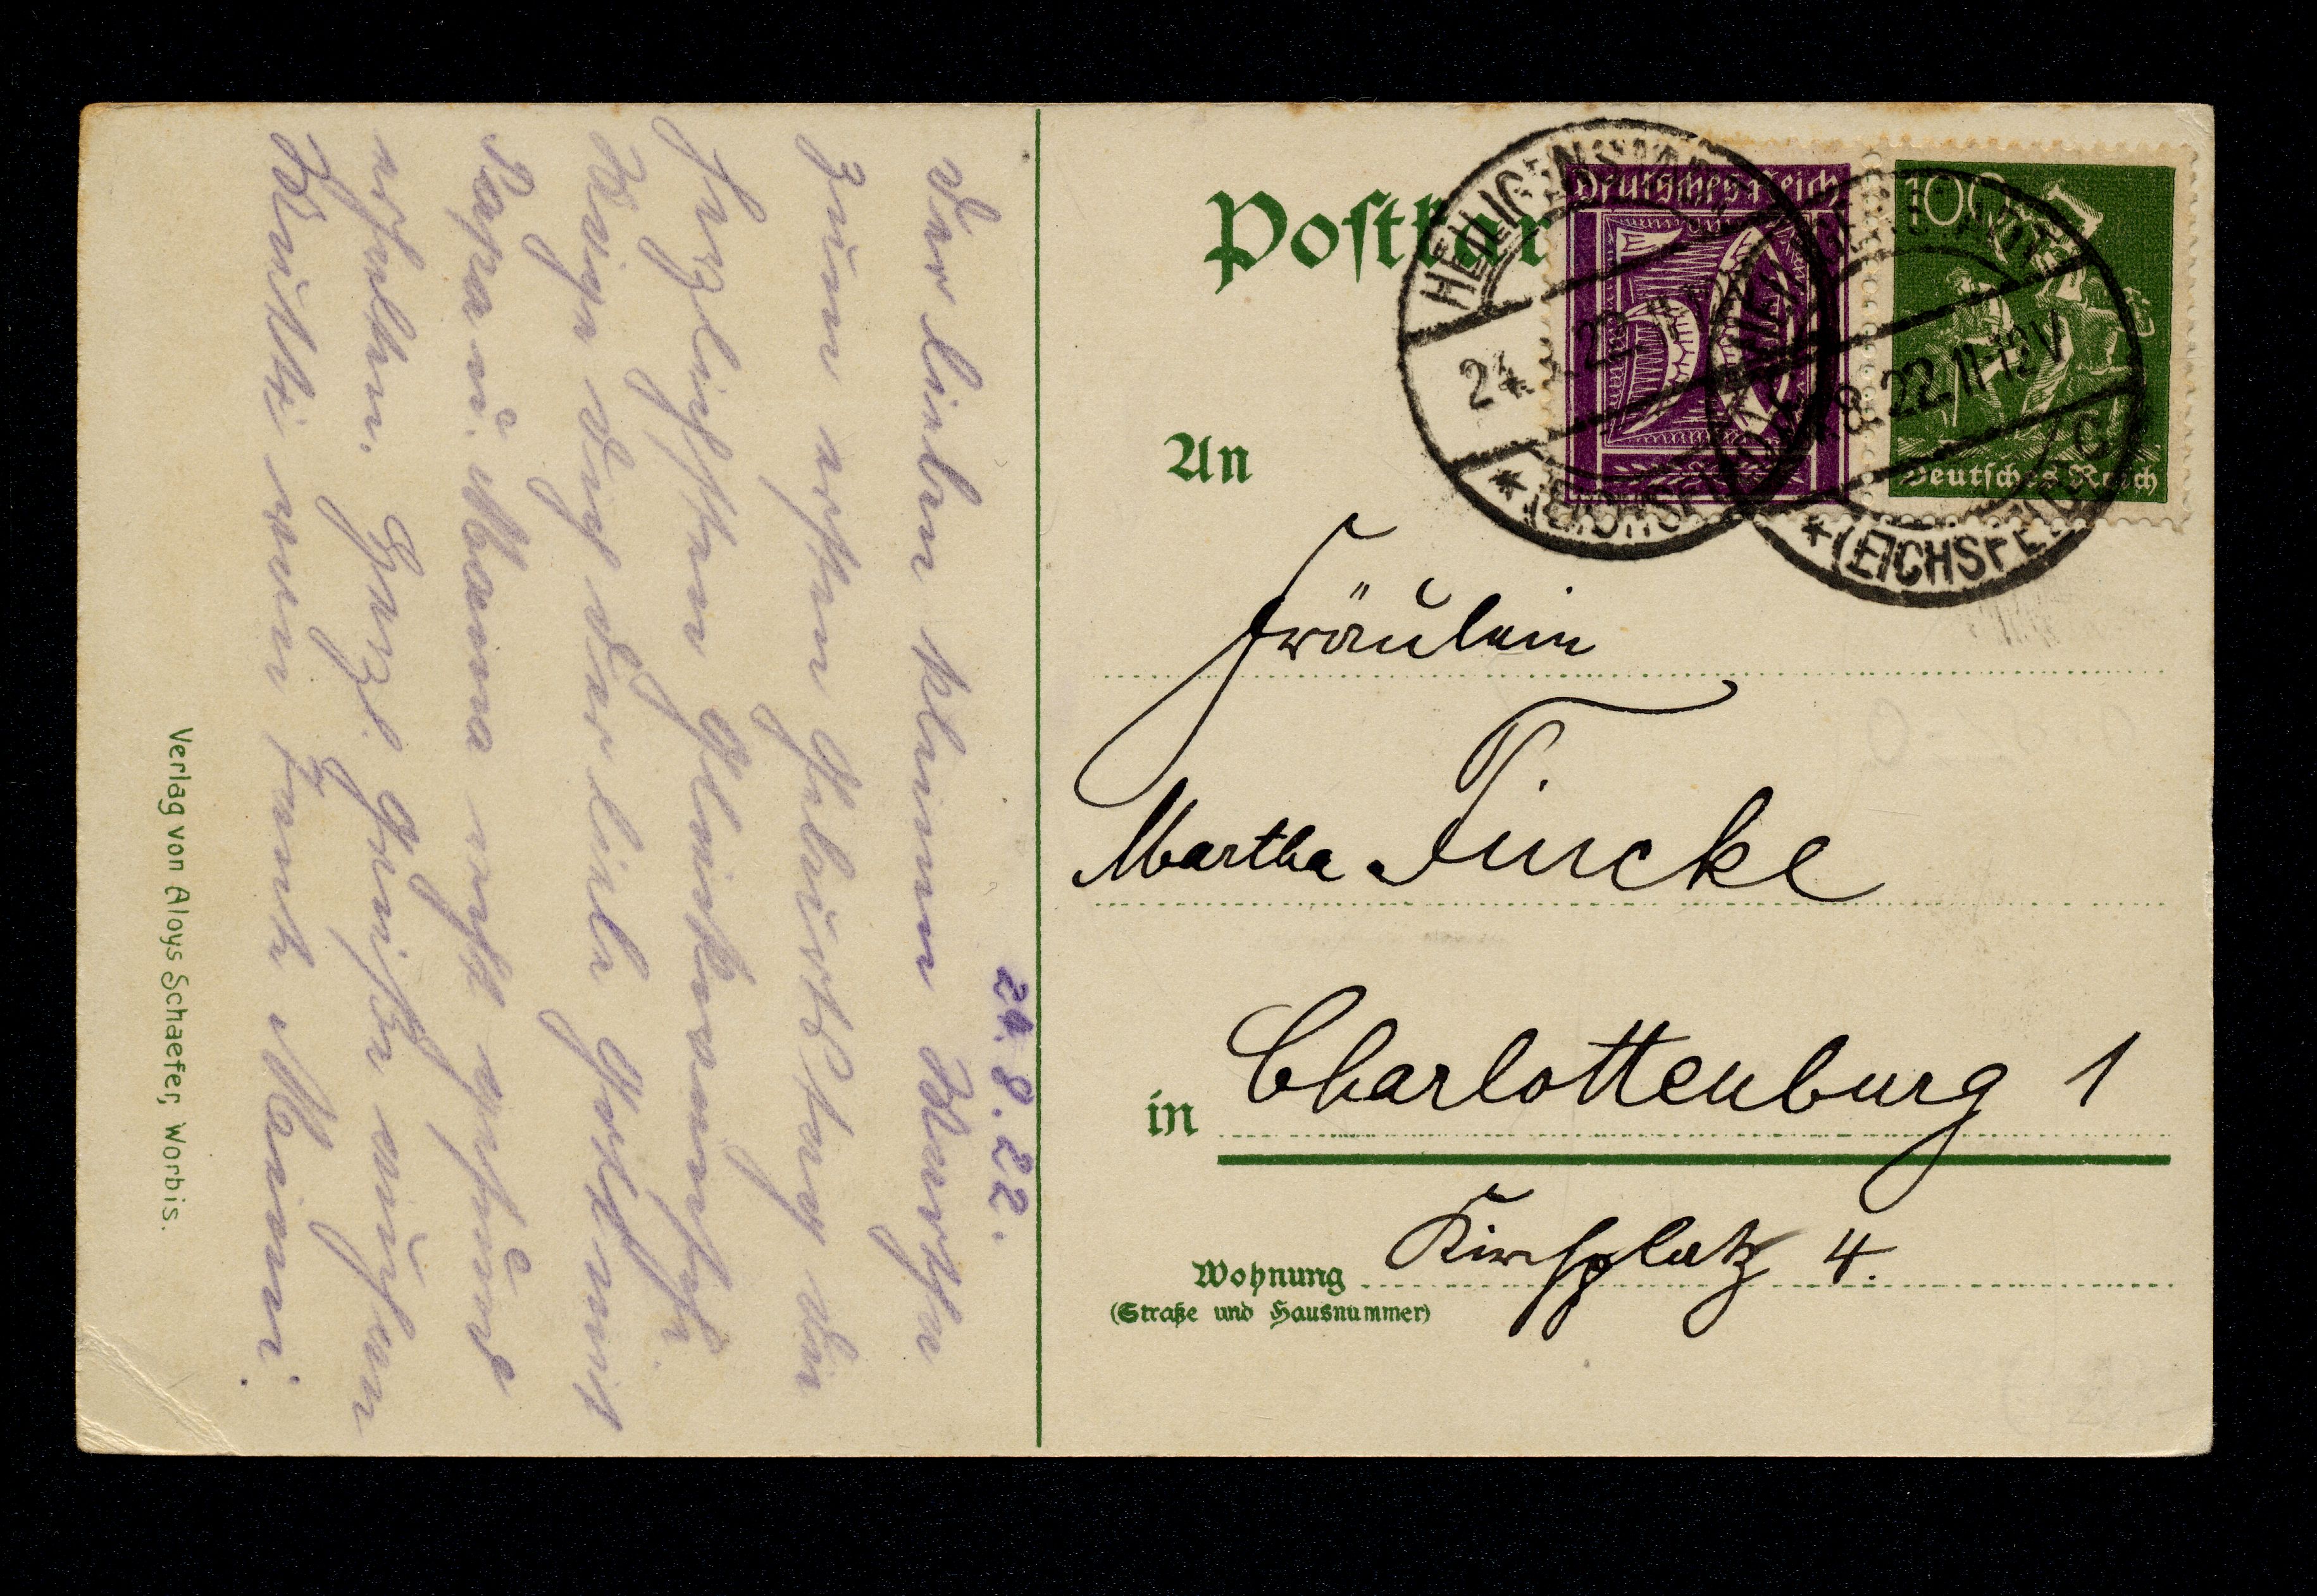 Postkar
Deutsches Reich
50
100
Deutsches Reich
HEILIGENSTADT
24. 8. 22. 11-12 V
* (EICHSFELD)
8. 22. 11-12 V
C
* (EICHSFELD)
An
Fräulein
Martha Fincke
in Charlottenburg 1
Wohnung Kirchplatz 4.
(Straße und Hausnummer)
24. 8. 22.
Der lieben kleinen Martha
zum ersten Geburtstag die
herzlichsten
Dich der liebe Gott mit
Papa u. Mama recht gesund
erhalten. Herzl. Grüße
von Tante Mimi.
Verlag von Aloys Schaefer, Worbis.